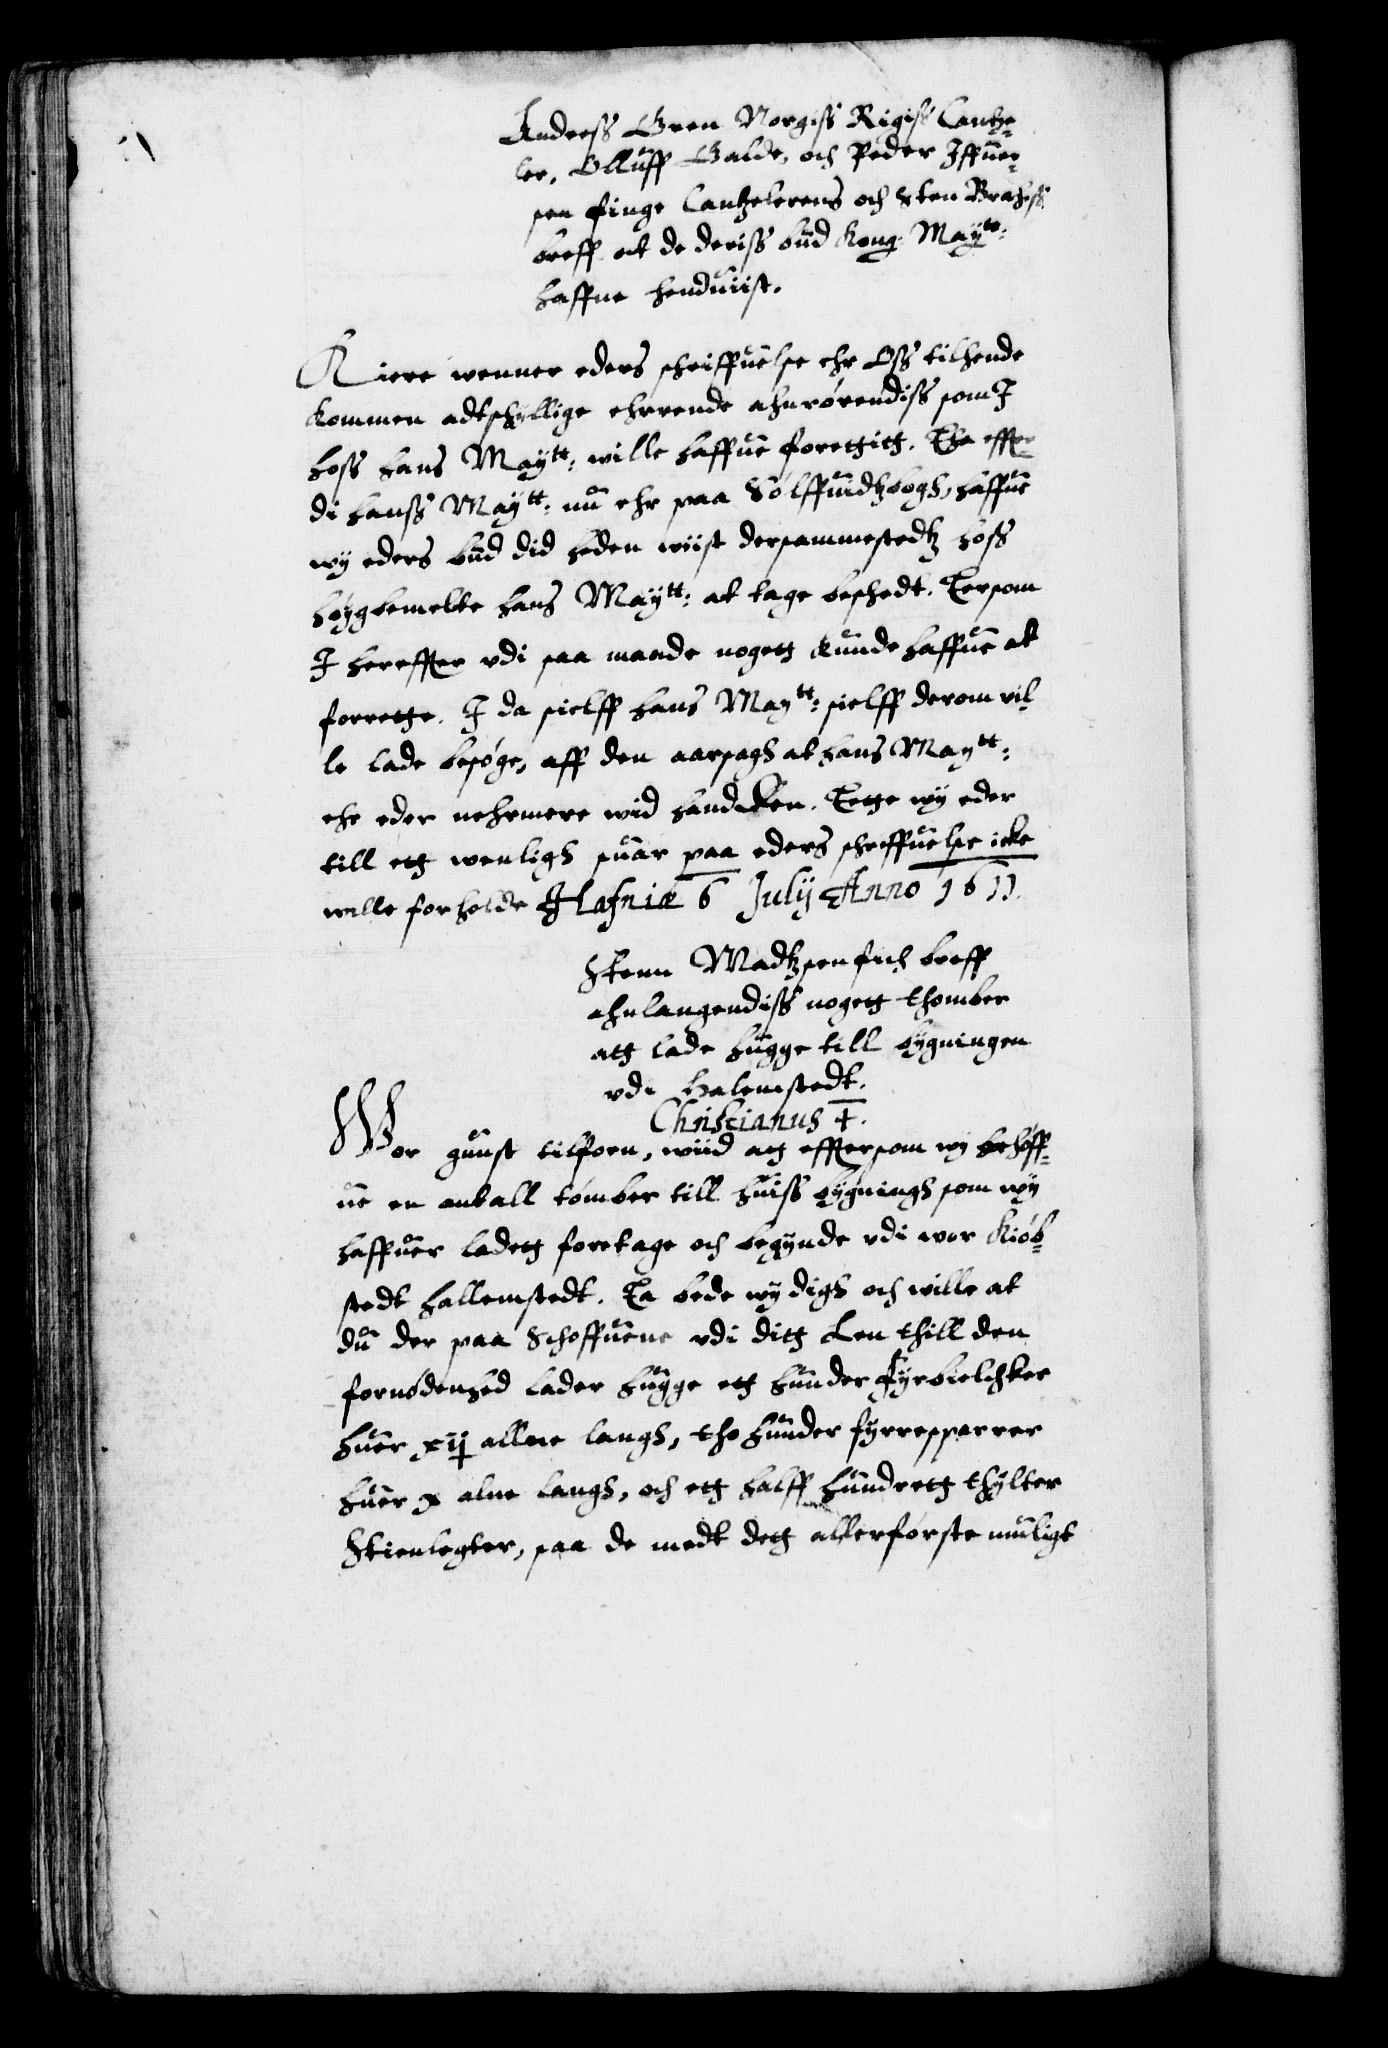 Anderss Gren Norgiss Rigiss Cantze-
ler, Olluff Galde, och Peder Iffuer-
sen finge Cantzelerens och Sten Brahiss
breff att de deriss bud Kong: Maytt:
haffue henduiist.
Kiere wenner eders schriffuelse ehr Oss tilhende
kommen adtschyllige ehrrende ahnrørendiss som I
hoss hans Maytt: wille haffue forettgitt. Tha effter
di hanss Maytt: nu ehr paa Sølffuidtzbogh, haffue
wy eders bud did heden wiist dersammestedtz hoss
høygbemelte hans Maytt: at tage beschedt. Dersom
I hereffter vdi saa maade nogett kunde haffue at
forrette. I da sielff hans Maytt: sielff derom vil
le lade besøge, aff den aarsagh at hans Maytt:
ehr eder nehrmere wid handden. Dette wy eder
till ett wenligh suar paa eders schreffuelse icke
wille forholde Hafniæ 6 July Anno 1611.
Stenn Madtzsen fich breff
ahnlangendiss nogett thømber
att lade hugge till bygningen
vdi Halemstedt.
Christianus 4.
Wor gunst tilforn, wiid att efftersom wy behøff-
ue en antall tømber till huiss bygningh som wy
haffuer ladett foretage och begynde vdi wor Kiøb-
stedt Hallemstedt. Da bede wy digh och wille at
du der paa Schoffuene vdi ditt Len thill den
fornødenhed lader hugge ett hunder fyrbielchker
huer xij allne langh, tho hunder fyrresparrer
huer x alne langh, och ett halff hundrett thylter
Stienlegter, saa de medt dett allerførste muligt